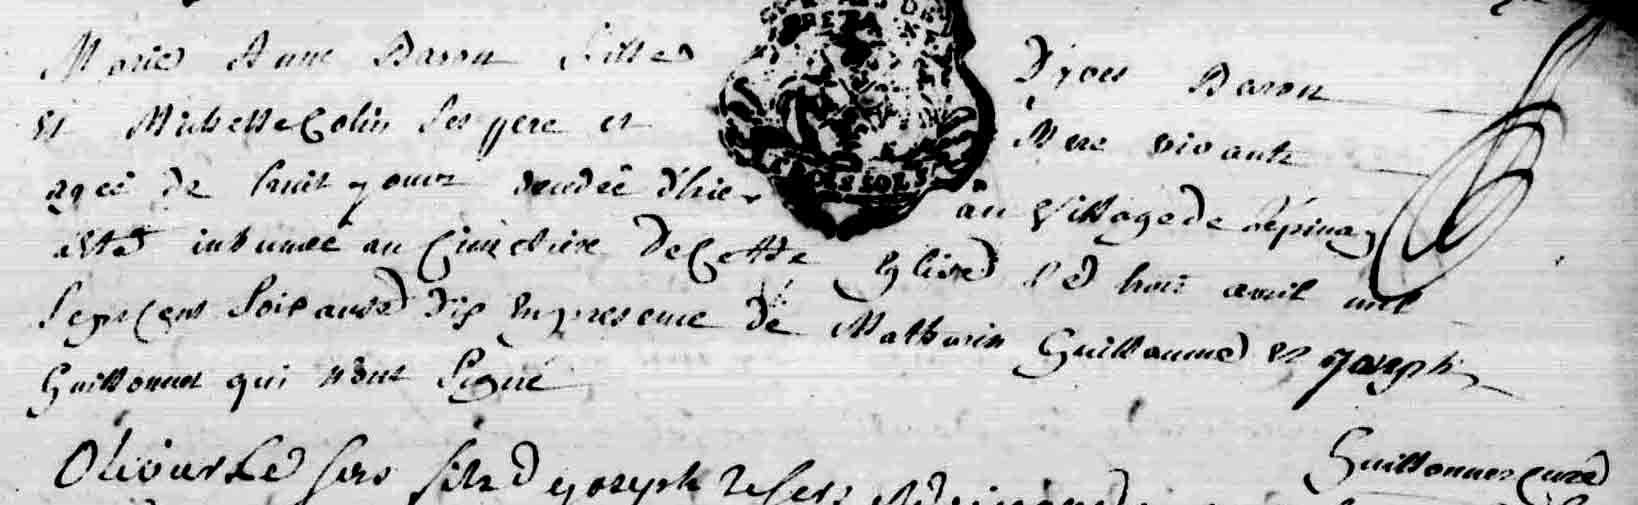 BRETA
Marie Anne Daron fille d'yves Daron
et Michelle Colin ses pere et Mere vivants
agée de huit jours decedée d'hier au Village de l'epinay
a été inhumée au Cimetiere de Cette Eglise le huit avril mil
sept cens soixante dix en presence de Mathurin Guillaume et Joseph
Guillonnet qui n'ont signé
Guillonnet curé
Olivier Le fils d joseph